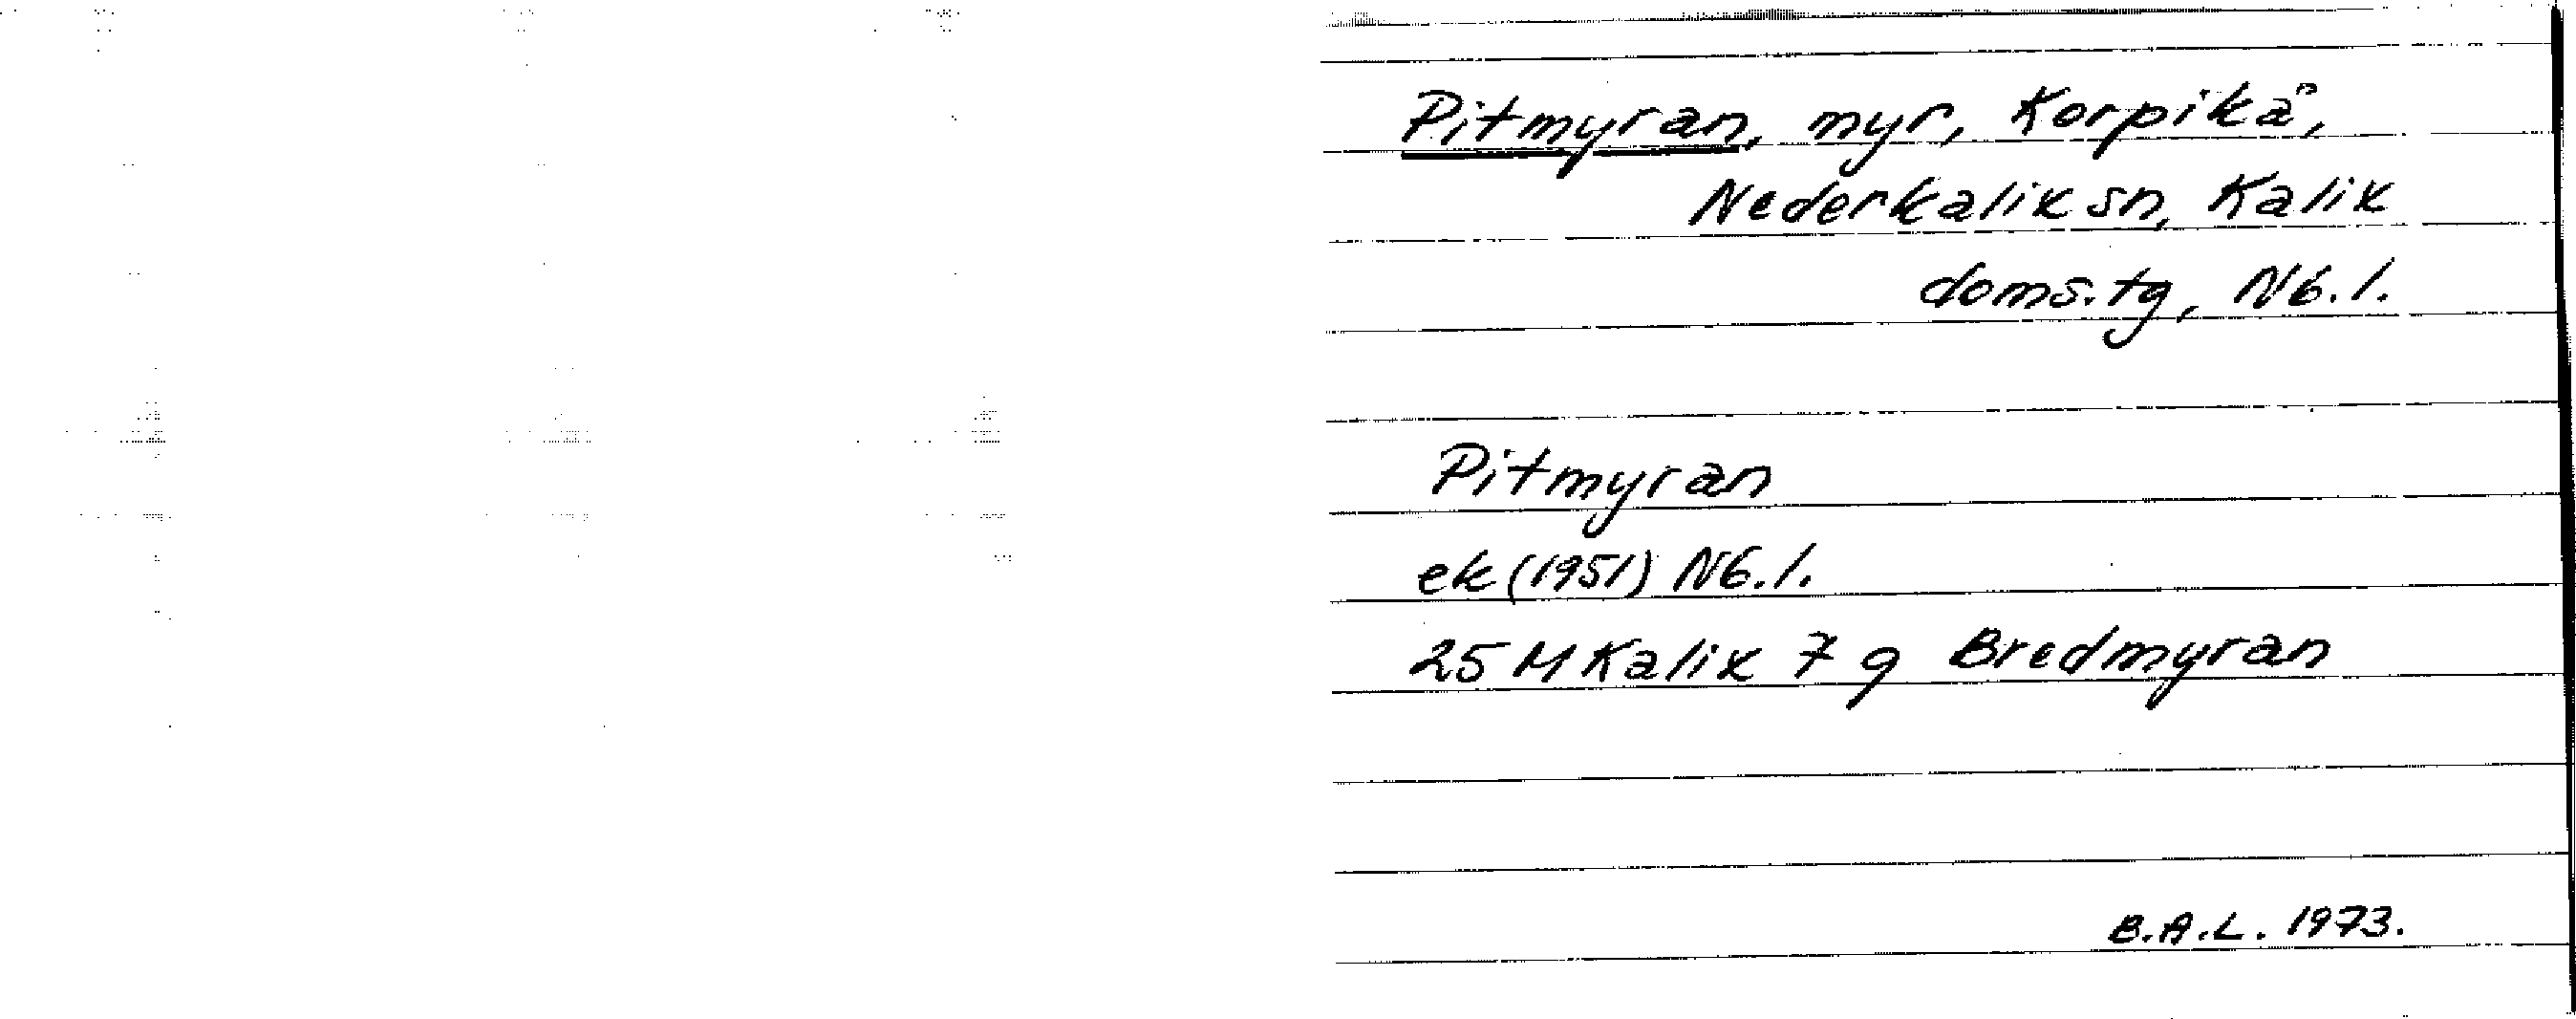 Pitmyran, myr, Korpikå,
Nederkalix sn, Kalix
doms.tg, Nb.l.
Pitmyran
ek (1951) Nb.l.
25 M Kalix 7 g Bredmyran
B.A.L. 1973.